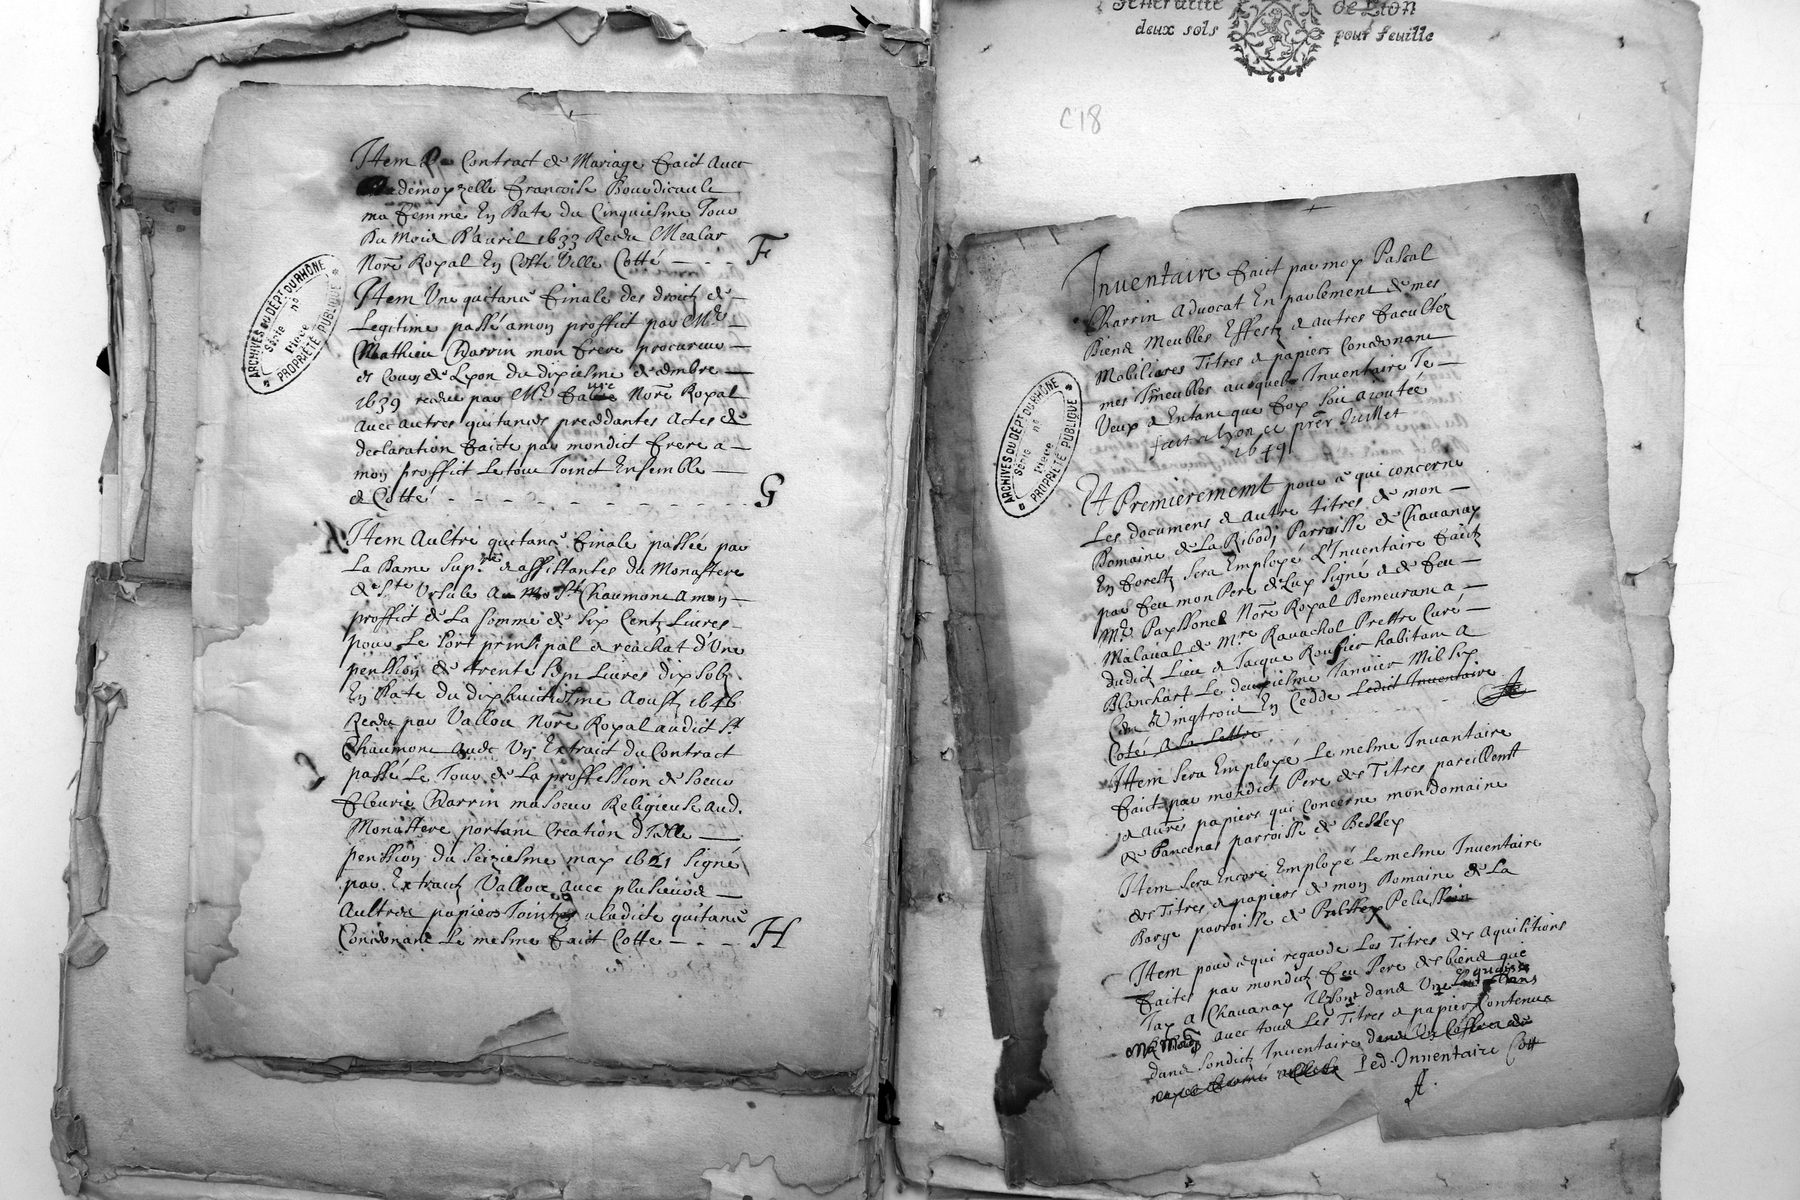 Item Le Contract de Mariage faict avec
demoyzelle francoise Bourdicaule
ma femme En Date du Cinquiesme Jour
Du Moid D'avril 1633 Receu Mealar
Nore Royal En Coste Ville Cotté - - - F
Item Une quitance finale des droictz de
Legitime passé a mon proffict par Me
Mathieu Charrin mon frere procureur
es Cours de Lyon du dixiesme decembre
1639 receue par Me Nore Royal
avec autres quitances precedantes actes de
declaration faicte par mondict frere a
mon proffict Le tout Joinct Ensemble
& Cotté - - - - - - - - - - G
Item Aultre quitance finale passée par
La Dame Supre & assistantes du Monastere
de Ste Ursule a St Chaumont a mon
proffict de La somme de six Centz Livres
pour Le sort principal & reachat d'Une
penssion de trente Livres dix solz
En Date du dixhuictiesme Aoust 1646
Receu par Vallou Nore Royal audict St
Chaumont avec Un Extraict du Contract
passé Le Jour de La proffession de soeur
fleurie Charrin ma soeur Religieuse aud.
Monastere portant Creation d'Icelle
penssion du seiziesme may 1621 signé
par Extraict Vallou avec plusieurs
Aultres papiers Joinctz a ladicte quitance
Concernant Le mesme faict Cotté - - - H
Generalité de Lion
deux sols pour feuille
C 18
Inventaire faict par moy Pascal
Charrin Advocat En parlement de mes
Biens Meubles Effectz & autres facultéz
Mobiliares Titres & papiers Concernant
mes Immeubles auquel Inventaire Je
Veux & Entant que foy soit adjoutée
fait a Lyon ce prer Juillet
1649
Et Premierement pour ce qui concerne
Les documens & autre titres de mon
Domaine de La Ribodj Parroisse de Chavanay
En foretz sera Employé L'Inventaire faict
par feu mon Pere de Luy signé & de feu
Me Payssonel Nore Royal Demeurant a
Malaval de Mre Ravachol Prestre Curé
dudict Lieu & Jacque Rousier habitant a
Blanchart Le deuxiesme Janvier Mil six
Cen Vingtrois En Cedde Ledict Inventaire
Coté a La Lettre - - - - A
Item sera Employé Le mesme Inventaire
faict par mondict Pere des Titres pareillemt
& autres papiers qui Concerne mon domaine
de Pancenas parroisse de Bessey
Item sera Encore Employé Le mesme Inventaire
des Titres & papiers de mon Domaine de La
Barge parroisse de Pelussin
Item pour ce qui regarde Les Titres des Aquisitions
faites par mondict feu Pere des biens que
Jay a Chavanay Ils sont dans Une
avec tous Les Titres & papiers Contenus
dans sondict Inventaire dans Un Coffre de
Led. Inventaire Cotté
A.
ARCHIVES DU DÉPT DU RHÔNE
Série nº
Pièce
PROPRIÉTÉ PUBLIQUE
ARCHIVES DU DÉPT DU RHÔNE
Série nº
Pièce
PROPRIÉTÉ PUBLIQUE